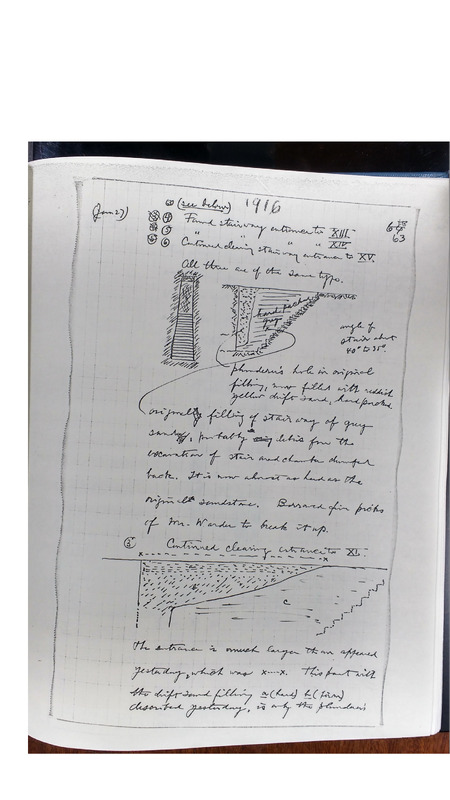 (Jan 27)
(see below) 1916
④ Found stairway entrance to XIII.
⑤ " " " " XIV
⑥ Continued clearing stairway entrance to XV.
63
All three are of the same type.
hard packed
grey
angle of
stairs about
40° to 35°.
plunderer's hole in original
filling, now filled with reddish
yellow drift sand, hard packed
original filling of stairway of grey
sand, probably debris from the
excavation of stair and chamber dumped
back. It is now almost as hard as the
original sandstone. Borrowed five picks
of Mr. Warder to break it up.
⑥ Continued clearing entrance to XI.
x x
a
b
c
The entrance is much larger than appeared
yesterday, which was x—x. This part with
the drift sand filling a (hard) b (firm)
described yesterday, is only the plunderer's